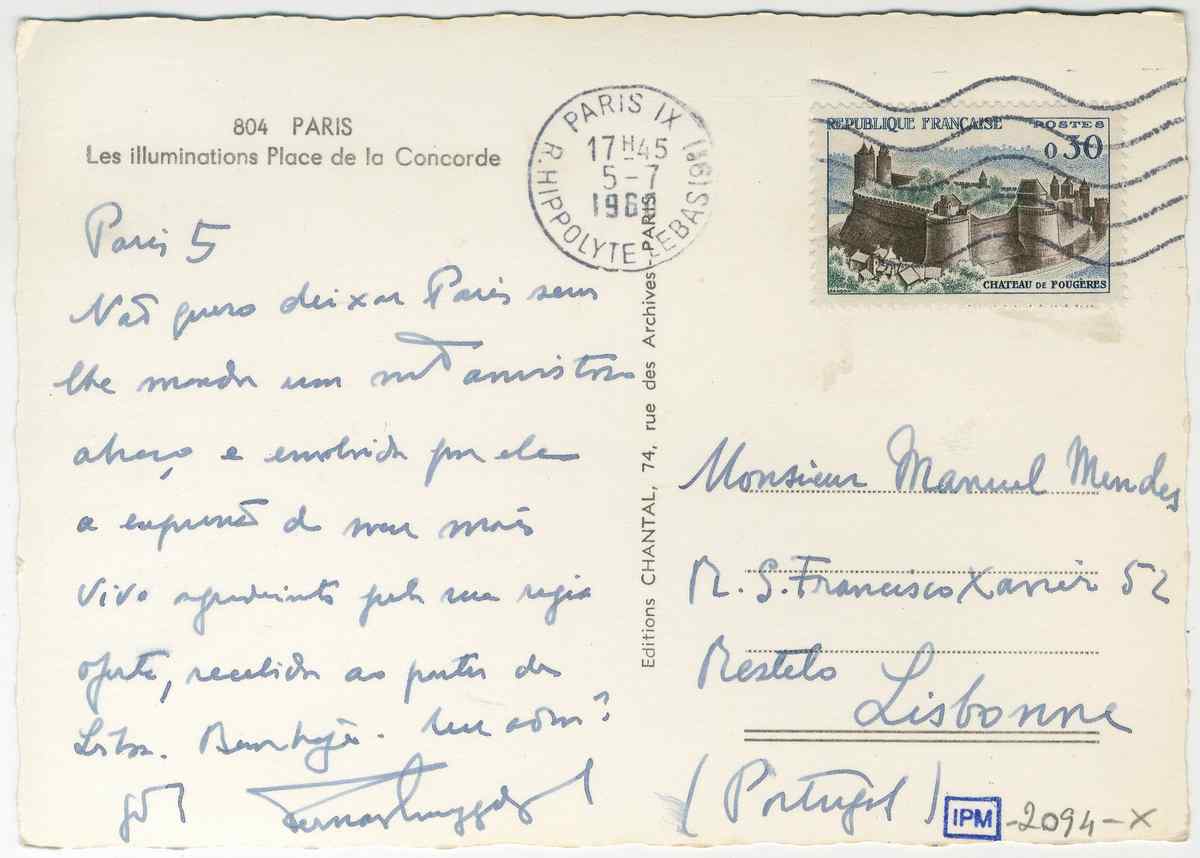 804 PARIS
Les illuminations Place de la Concorde
Paris 5
Não quero deixar Paris sem
lhe mandar um mto amistoso
abraço e envolvida por ele
a expressão do meu mais
vivo agradecimento pela sua régia
oferta, recebida ao partir de
Lisboa. Bem haja. Seu adm.
PARIS IX
17H45
5-7
R. HIPPOLYTE LEBAS (9e)
Editions CHANTAL, 74, rue des Archives - PARIS
REPUBLIQUE FRANÇAISE POSTES
0,30
CHATEAU DE FOUGÈRES
Monsieur Manuel Mendes
R. S. Francisco Xavier 52
Restelo
Lisbonne
(Portugal)
IPM -2094-X